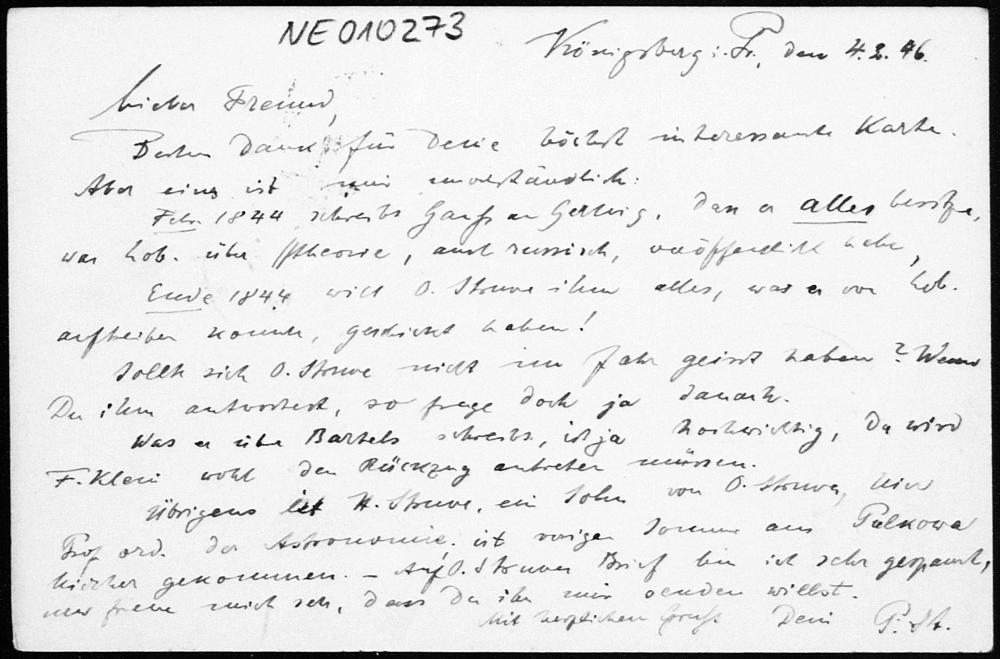 NE010273
Königsberg i. Pr., den 4.2.96.
Lieber Freund,
Besten Dank für Deine höchst interessante Karte.
Aber eines ist mir unverständlich:
Febr. 1844 schreibt Gauß an Gerling, dass er alles besitze,
was Lob. über Theorie, auch russisch, veröffentlicht habe,
Ende 1844 will O. Struve ihm alles, was er von Lob.
auftreiben konnte, geschickt haben!
Sollte sich O. Struve nicht im Jahr geirrt haben? Wenn
Du ihm antwortest, so frage doch ja danach.
Was er über Bartels schreibt, ist ja hochwichtig, da wird
F. Klein wohl den Rückzug antreten müssen.
Übrigens ist H. Struve, ein Sohn von O. Struve, hier
Prof. ord. der Astronomie, ist vorigen Sommer aus Pulkowa
hierher gekommen. – Auf O. Struves Brief bin ich sehr gespannt,
und freue mich sehr, dass Du ihn mir senden willst.
Mit herzlichem Gruß Dein P. St.